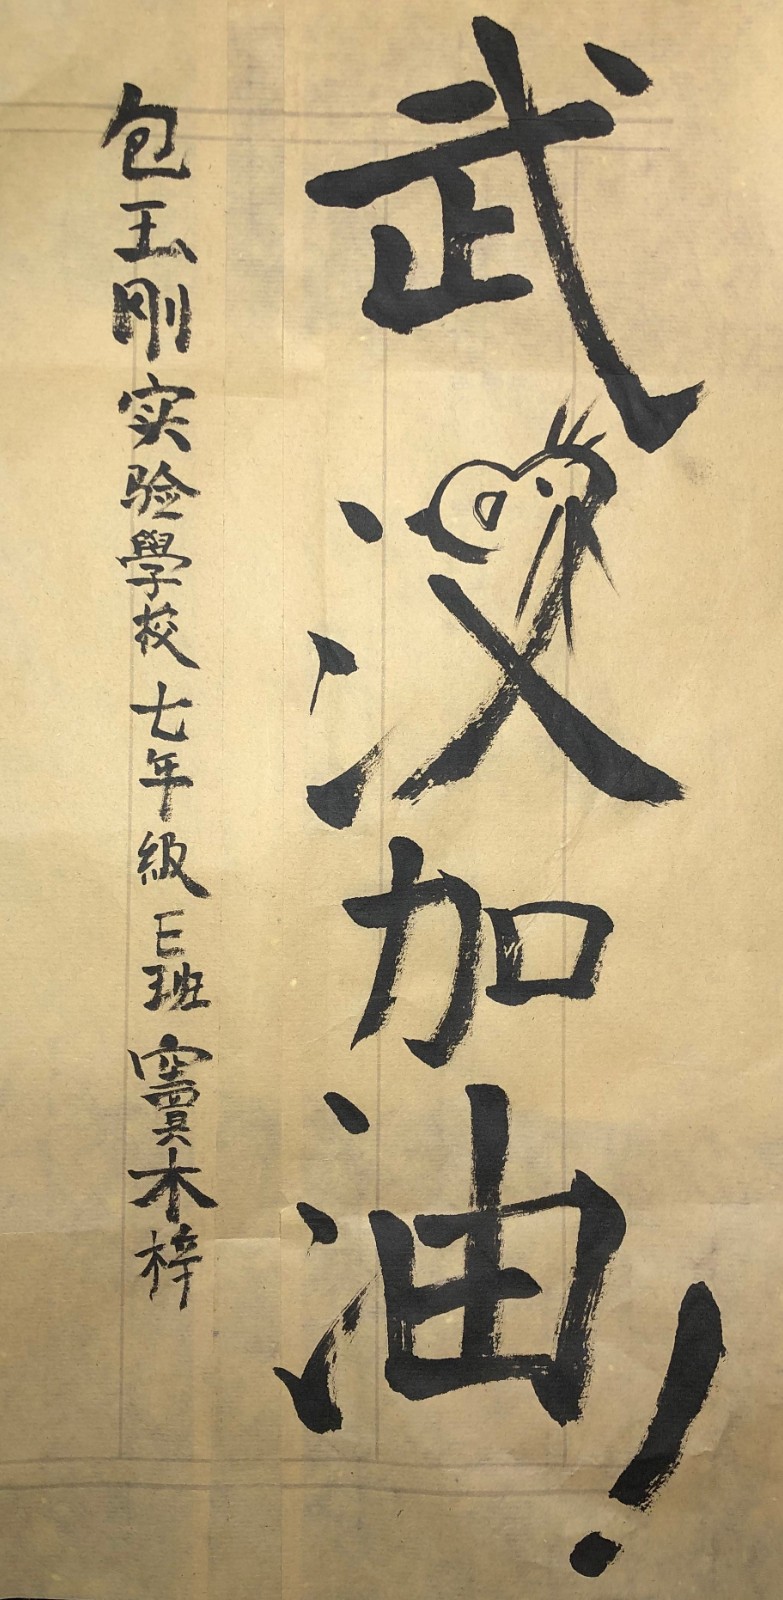 武汉加油!
包玉刚实验學校七年級E班竇木梓